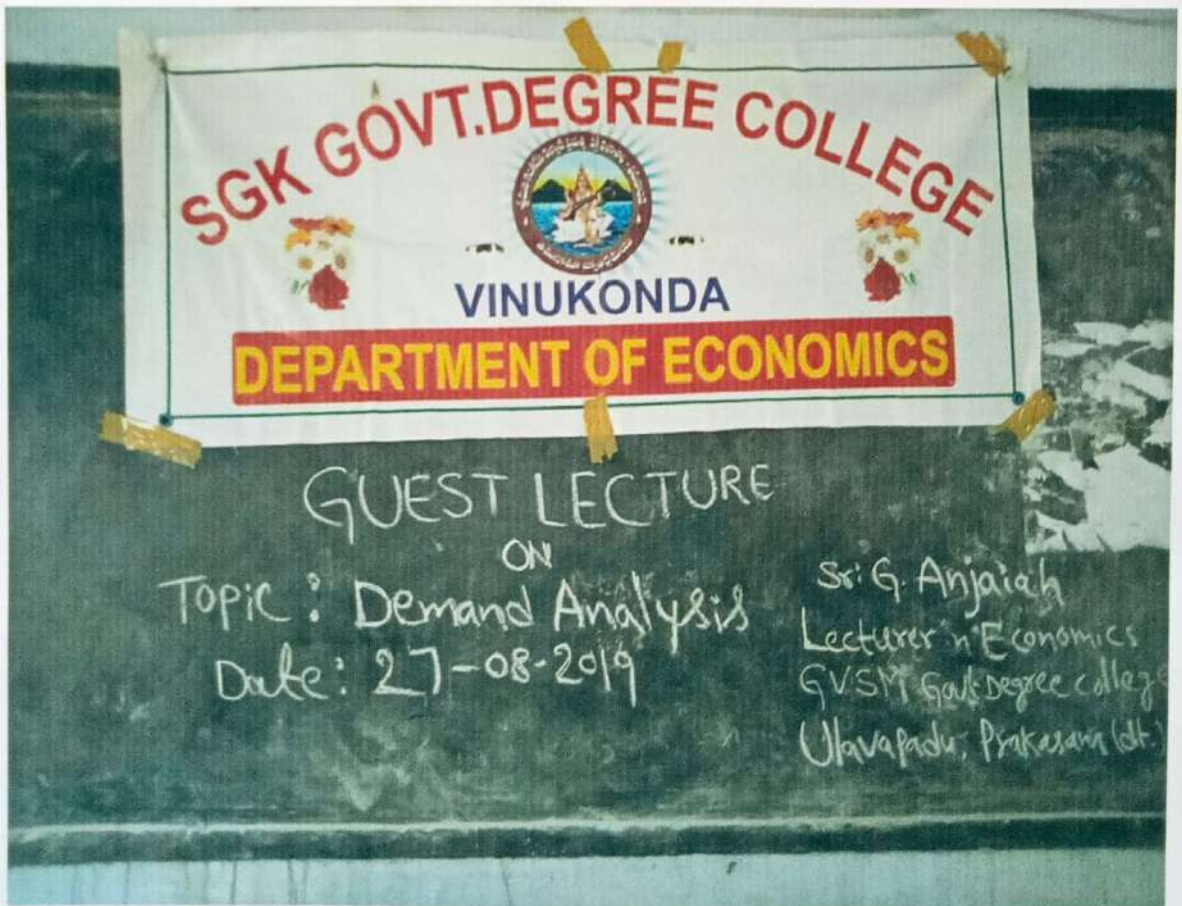 SGK GOVT.DEGREE COLLEGE
VINUKONDA
DEPARTMENT OF ECONOMICS
GUEST LECTURE
ON
Topic : Demand Analysis
Date: 27-08-2019
Sri G. Anjaiah
Lecturer in Economics
GVSM Govt Degree college
Ulavapadu, Prakasam (dt.)